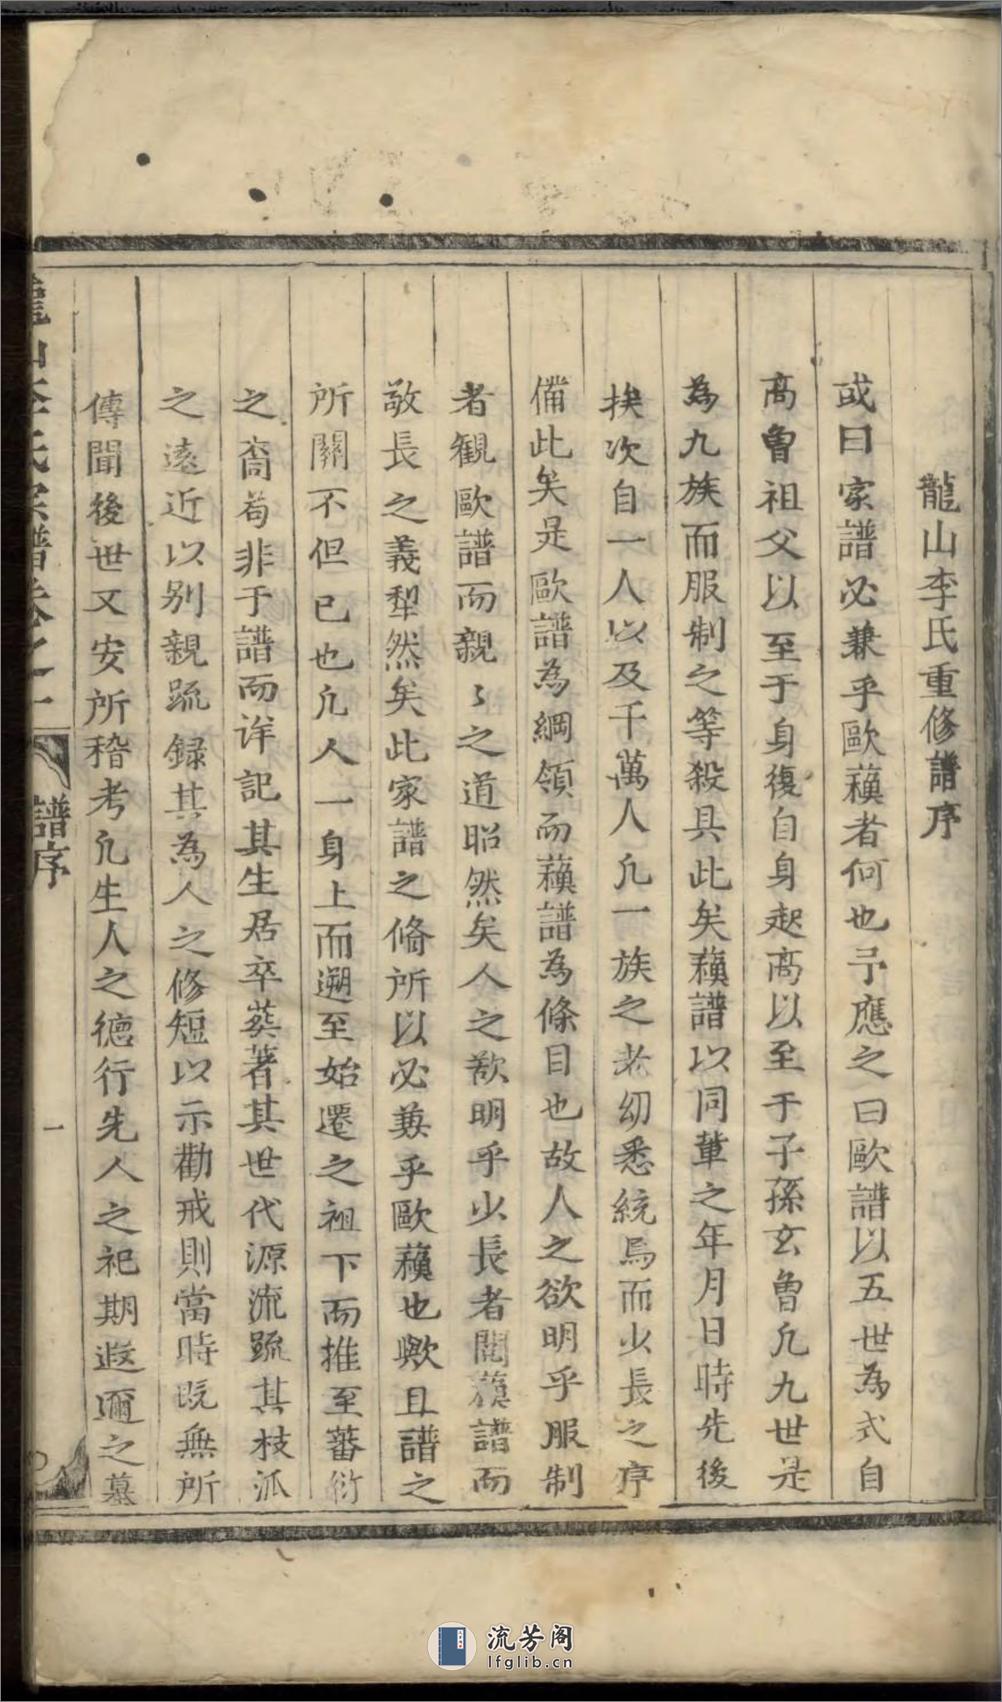 龍山李氏重修譜序
或曰家譜必兼乎歐蘓者何也予應之曰歐譜以五世為式自
高曾祖父以至于身復自身起高以至于子孫玄曾凢九世是
為九族而服制之等殺具此矣蘓譜以同輩之年月日時先後
挨次自一人以及千萬人凢一族之老幼悉統焉而少長之序
備此矣是歐譜為綱領而蘓譜為條目也故人之欲明乎服制
者観歐譜而親〻之道昭然矣人之欲明乎少長者閱蘓譜而
敬長之義犁然矣此家譜之脩所以必兼乎歐蘓也歟且譜之
所關不但已也凢人一身上而遡至始遷之祖下而推至蕃衍
之裔苟非于譜而详記其生居卒葬著其世代源流䟽其枝派
之遠近以别親䟽録其為人之修短以示勸戒則當時既無所
傳聞後世又安所稽考凢生人之德行先人之祀期遐邇之墓
龍山李氏宗譜卷之一
譜序
一
流芳阁
lfglib.cn